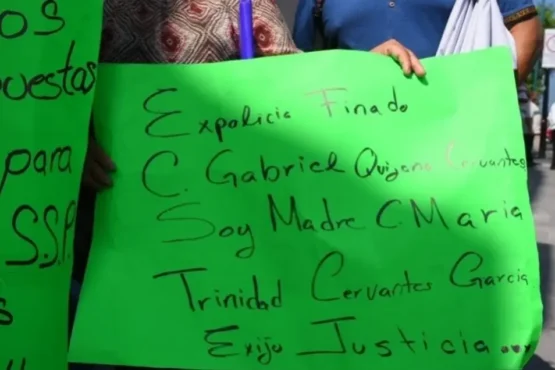 os
uestas
para
S.S.P.
s
Expolicia Finado
C. Gabriel Cervantes
Soy Madre C. Maria
Trinidad Cervantes Garcia
Exijo Justicia...